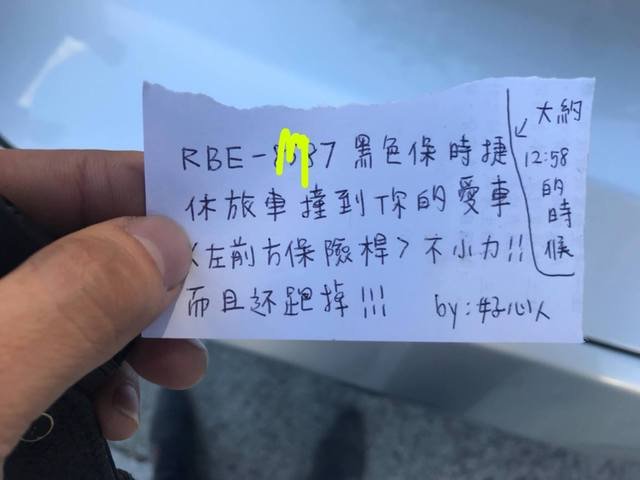 RBE-   7 黑色保時捷
休放車撞到你的愛車
<左前方保險桿> 不小力!!
而且还跑掉!!!
by:好心人
大約
12:58
的
時
候